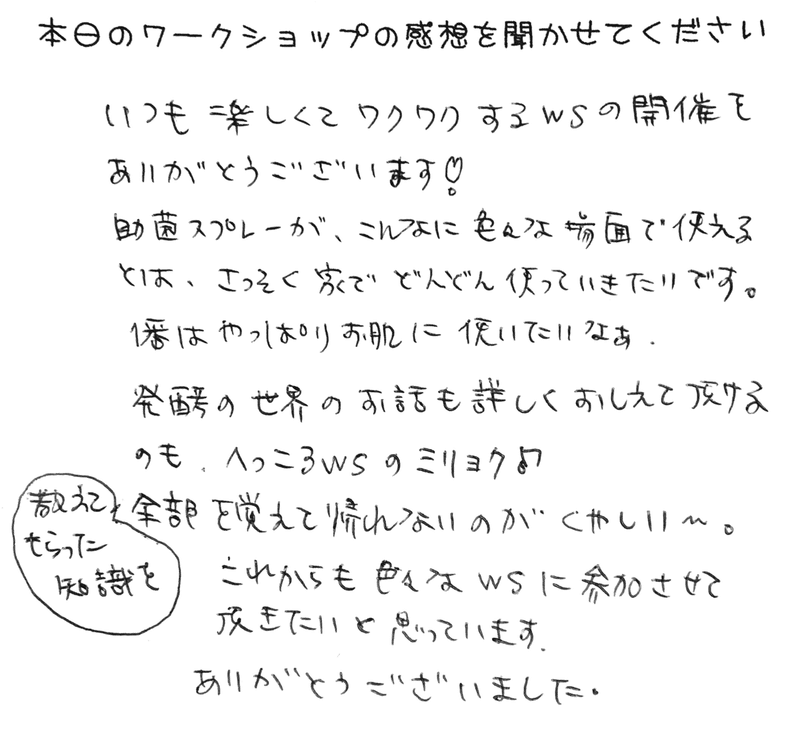 本日のワークショップの感想を聞かせてください
いつも楽しくてワクワクするWSの開催を
ありがとうございます♡
助菌スプレーが、こんなに色んな場面で使える
とは、さっそく家でどんどん使っていきたいです。
1番はやっぱりお肌に使いたいなぁ.
発酵の世界のお話も詳しくおしえて頂ける
のも、へっころWSのミリョク♫
教えて
もらった
知識を
全部を覚えて帰れないのがくやしい〜。
これからも色んなWSに参加させて
頂きたいと思っています.
ありがとうございました.